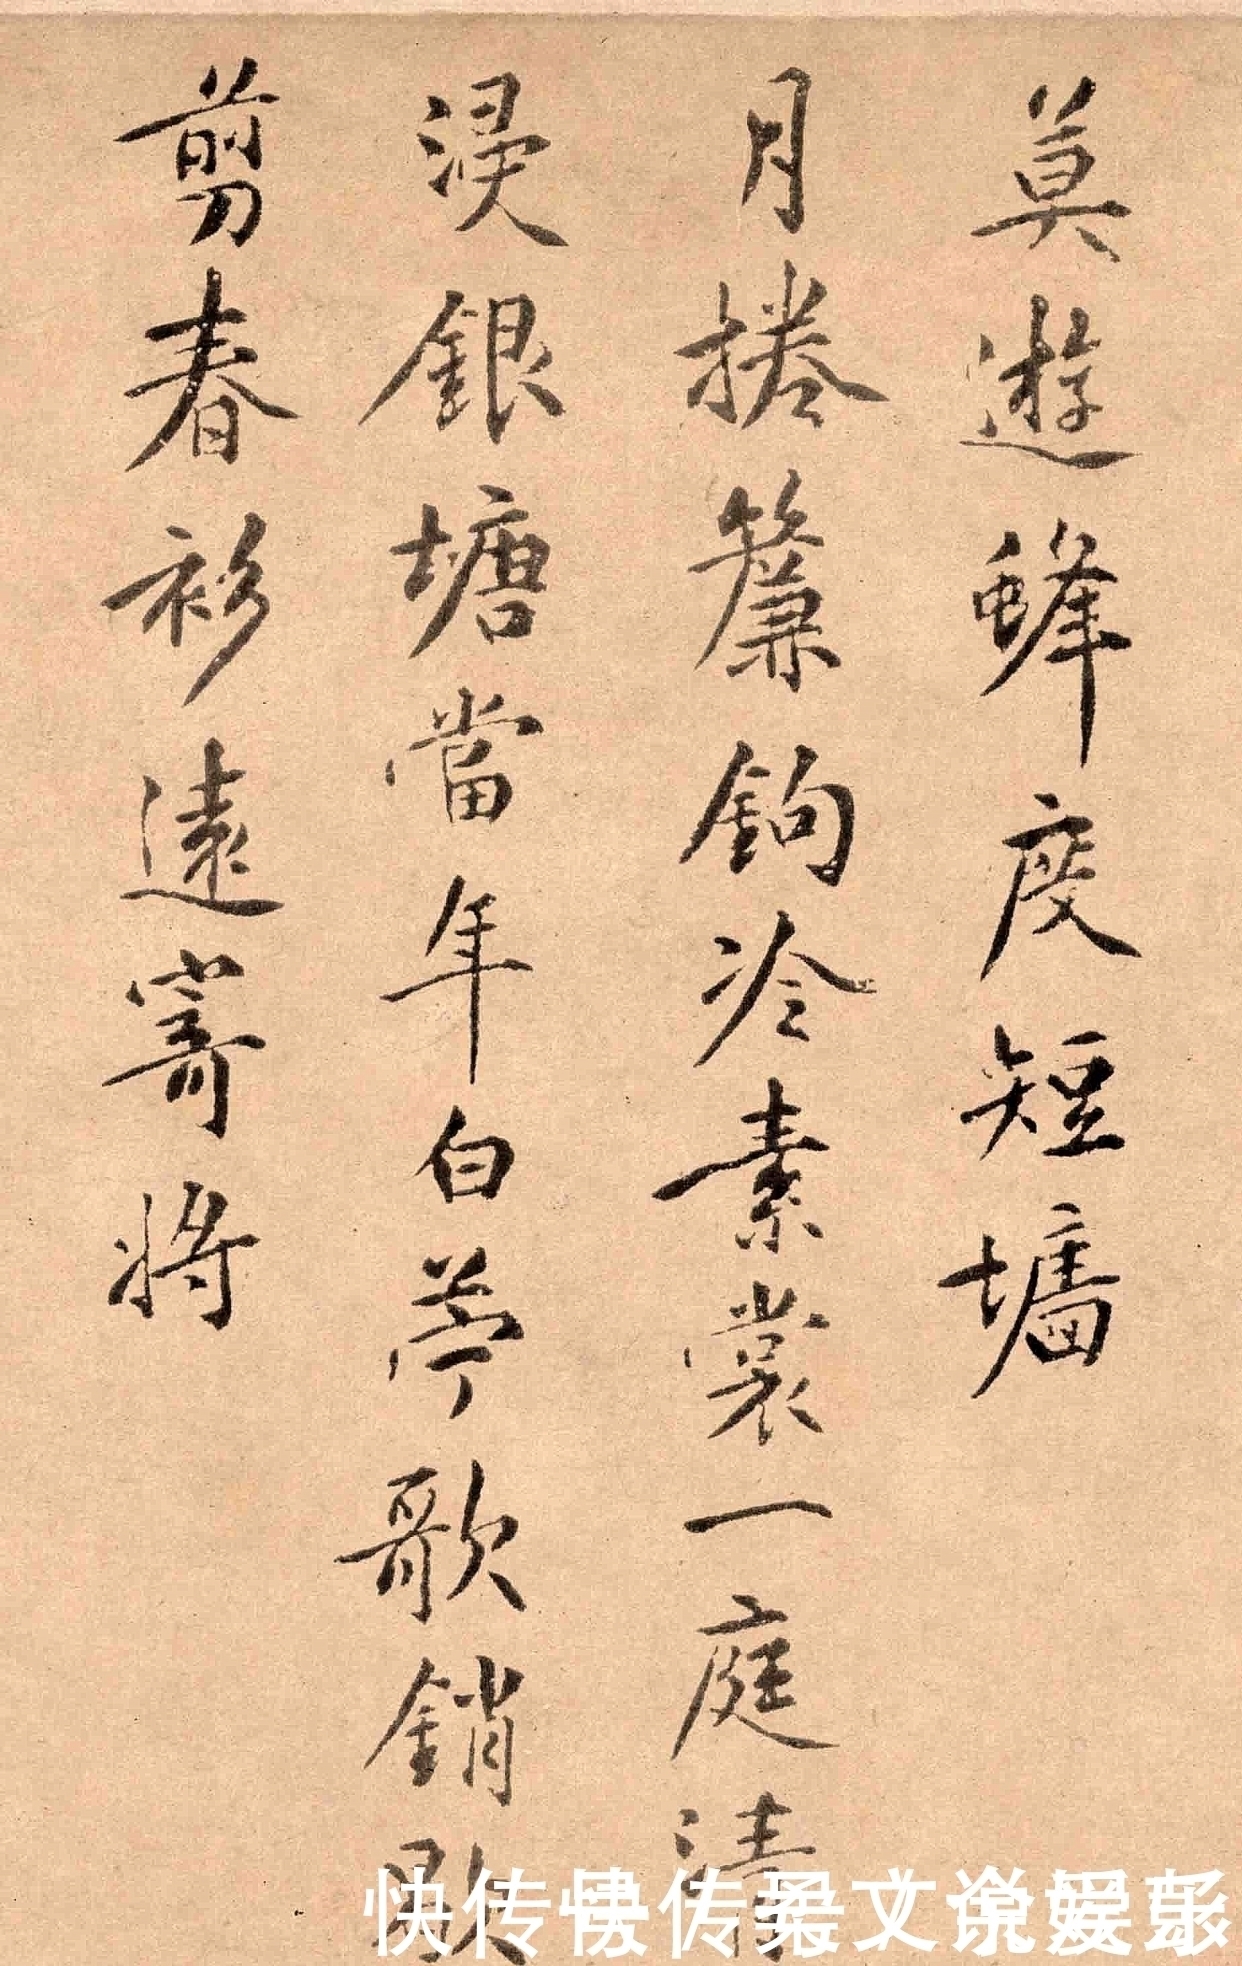 莫遊蜂度短墻
月捲簾鉤冷素裳一庭清
浸銀塘當年白苧歌銷歇
剪春衫遠寄將